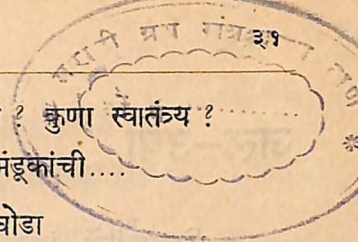 ३१
? कुणा स्वातंत्र्य ?
मंडूकांची....
घोडा